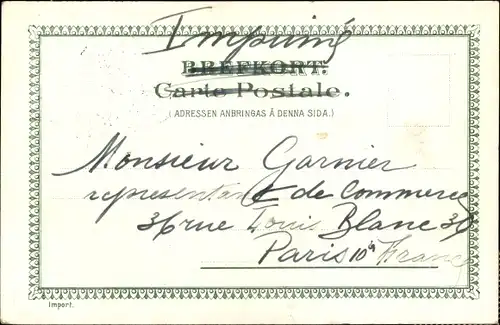 Imprimé
BREFKORT.
Carte Postale.
(ADRESSEN ANBRINGAS Å DENNA SIDA.)
Monsieur Garnier
representant de Commerce
36 rue Louis Blanc 36
Paris 10e France
Import.